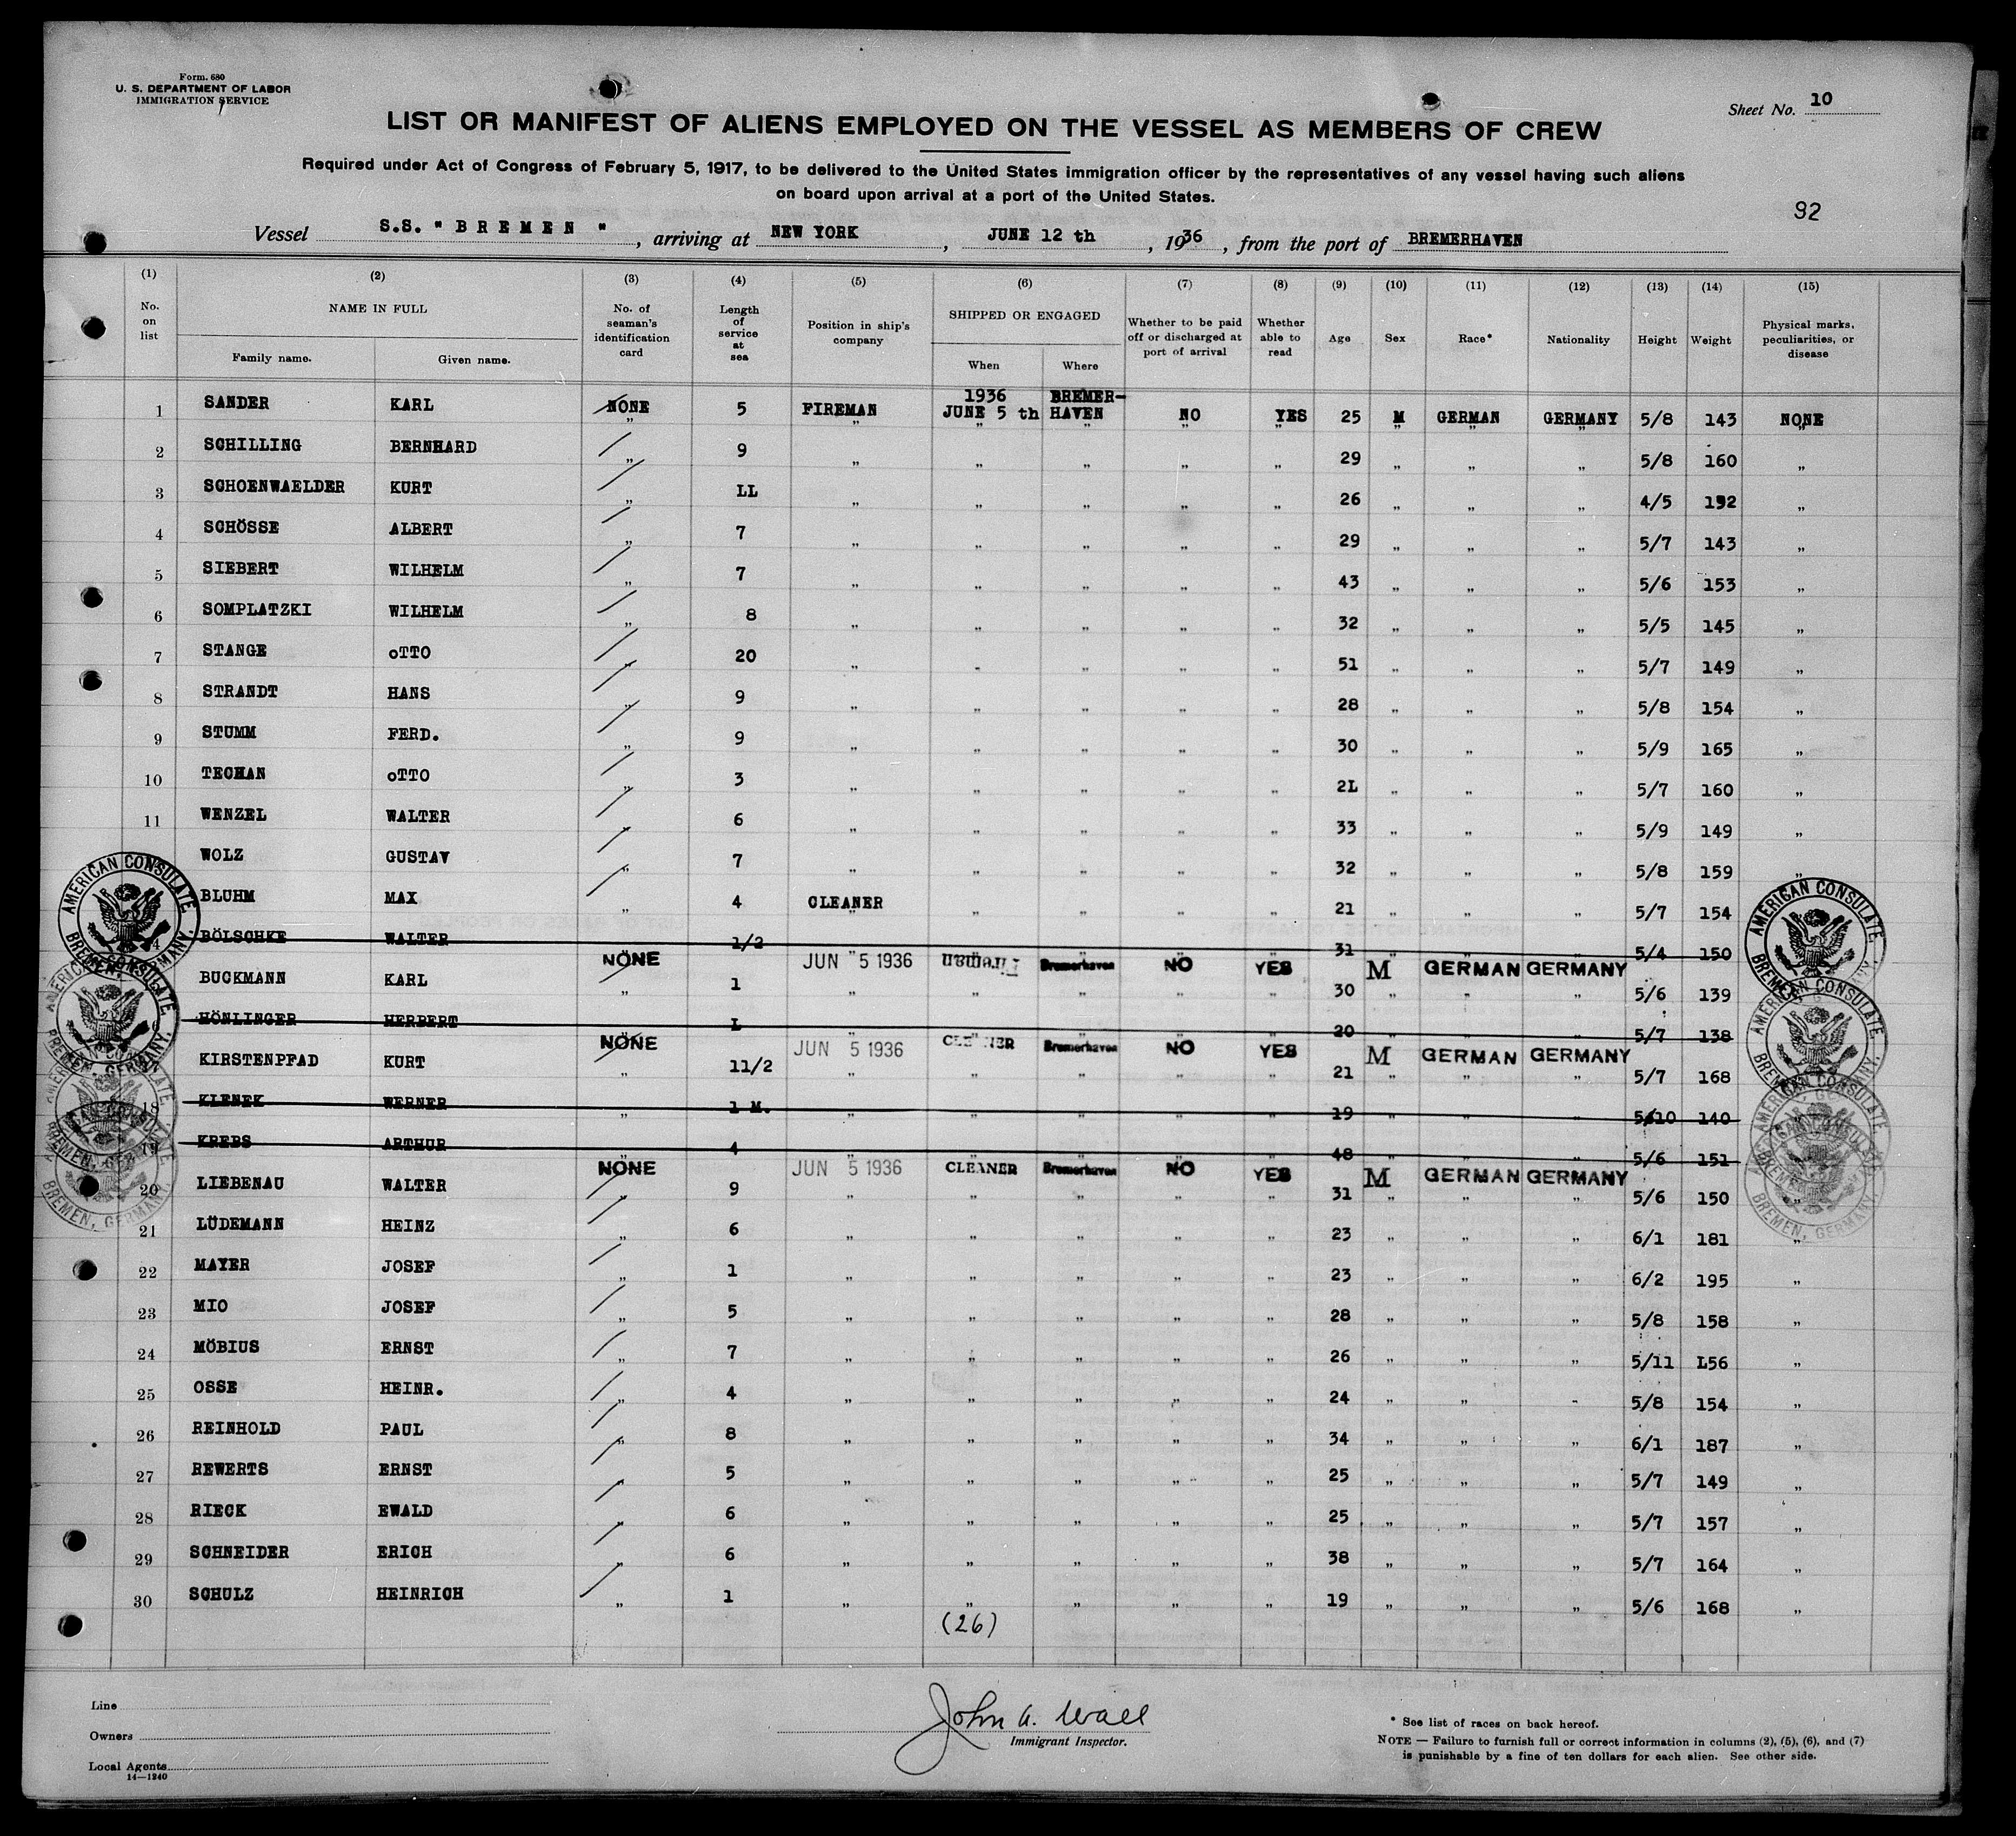 Form. 680
U. S. DEPARTMENT OF LABOR
IMMIGRATION SERVICE
Sheet No. 10
LIST OR MANIFEST OF ALIENS EMPLOYED ON THE VESSEL AS MEMBERS OF CREW
Required under Act of Congress of February 5, 1917, to be delivered to the United States immigration officer by the representatives of any vessel having such aliens
on board upon arrival at a port of the United States.
92
Vessel S.S. "BREMEN", arriving at NEW YORK, JUNE 12 th, 1936, from the port of BREMERHAVEN
(1) (2) (3) (4) (5) (6) (7) (8) (9) (10) (11) (12) (13) (14) (15)
No. on list
NAME IN FULL
Family name. Given name.
No. of seaman's identification card
Length of service at sea
Position in ship's company
SHIPPED OR ENGAGED
When Where
Whether to be paid off or discharged at port of arrival
Whether able to read
Age
Sex
Race*
Nationality
Height
Weight
Physical marks, peculiarities, or disease
1 SANDER KARL NONE 5 FIREMAN 1936 JUNE 5 th BREMER-HAVEN NO YES 25 M GERMAN GERMANY 5/8 143 NONE
2 SCHILLING BERNHARD " 9 " " " " " 29 " " " 5/8 160 "
3 SCHOENWAELDER KURT " LL " " " " " 26 " " " 4/5 192 "
4 SCHÖSSE ALBERT " 7 " " " " " 29 " " " 5/7 143 "
5 SIEBERT WILHELM " 7 " " " " " 43 " " " 5/6 153 "
6 SOMPLATZKI WILHELM " 8 " " " " " 32 " " " 5/5 145 "
7 STANGE oTTO " 20 " - " " " 51 " " " 5/7 149 "
8 STRANDT HANS " 9 " " " " " 28 " " " 5/8 154 "
9 STUMM FERD. " 9 " " " " " 30 " " " 5/9 165 "
10 TECHAN oTTO " 3 " " " " " 2L " " " 5/7 160 "
11 WENZEL WALTER " 6 " " " " " 33 " " " 5/9 149 "
WOLZ GUSTAV " 7 " " " " " 32 " " " 5/8 159 "
BLUHM MAX " 4 CLEANER " " " " 21 " " " 5/7 154
4 BÖLSCHKE WALTER 1/2 31 5/4 150
NONE JUN 5 1936 Fireman Bremerhaven NO YES M GERMAN GERMANY
BUCKMANN KARL " 1 " " " " " 30 " " " 5/6 139
HÖNLINGER HERBERT L 20 5/7 138
NONE JUN 5 1936 CLEANER Bremerhaven NO YES M GERMAN GERMANY
KIRSTENPFAD KURT " 11/2 " " " " " 21 " " " 5/7 168
18 KLENEK WERNER " 1 M. " " " " " 19 " " " 5/10 140
19 KREBS ARTHUR 4 48 5/6 151
NONE JUN 5 1936 CLEANER Bremerhaven NO YES M GERMAN GERMANY
20 LIEBENAU WALTER " 9 " " " " " 31 " " " 5/6 150 "
21 LÜDEMANN HEINZ " 6 " " " " " 23 " " " 6/1 181 "
22 MAYER JOSEF " 1 " " " " " 23 " " " 6/2 195 "
23 MIO JOSEF " 5 " " " " " 28 " " " 5/8 158 "
24 MÖBIUS ERNST " 7 " " " " " 26 " " " 5/11 L56 "
25 OSSE HEINR. " 4 " " " " " 24 " " - 5/8 154 "
26 REINHOLD PAUL " 8 " " " " " 34 " " " 6/1 187 "
27 REWERTS ERNST " 5 " " " " " 25 " " " 5/7 149 "
28 RIECK EWALD " 6 " " " " " 25 " " " 5/7 157 "
29 SCHNEIDER ERICH " 6 " " " " " 38 " " " 5/7 164 "
30 SCHULZ HEINRICH " 1 " " " " " 19 " " " 5/6 168 "
(26)
AMERICAN CONSULATE BREMEN, GERMANY.
AMERICAN CONSULATE BREMEN, GERMANY.
AMERICAN CONSULATE BREMEN, GERMANY.
AMERICAN CONSULATE BREMEN, GERMANY.
AMERICAN CONSULATE BREMEN, GERMANY.
AMERICAN CONSULATE BREMEN, GERMANY.
AMERICAN CONSULATE BREMEN, GERMANY.
AMERICAN CONSULATE BREMEN, GERMANY.
Line
Owners
Local Agents
14—1240
John A. Wall
Immigrant Inspector.
* See list of races on back hereof.
NOTE — Failure to furnish full or correct information in columns (2), (5), (6), and (7)
is punishable by a fine of ten dollars for each alien. See other side.